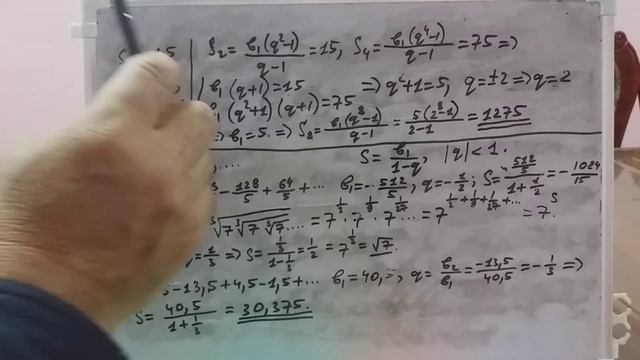 S₂ = b₁(q²-1)/(q-1) = 15, S₄ = b₁(q⁴-1)/(q-1) = 75 =>
b₁(q+1) = 15 => q²+1 = 5, q = ±2 => q = 2
(q²+1)(q+1) = 75
=> b₁ = 5. => S₈ = b₁(q⁸-1)/(q-1) = 5(2⁸-1)/(2-1) = 1275
S = b₁/(1-q), |q| < 1.
- 128/5 + 64/5 + ... b₁ = - 512/5, q = - 1/2; S = -512/5/(1+1/2) = - 1024/15
√7 ³√7 ³√7... = 7^1/3 · 7^1/9 · 7^1/27 ... = 7^1/3+1/9+1/27+... = 7^S.
= 1/3 => S = 1/3/(1-1/3) = 1/2 = 7^1/2 = √7.
-13,5+4,5-1,5+... b₁ = 40, q = b₂/b₁ = -13,5/40,5 = - 1/3 =>
S = 40,5/(1+1/3) = 30,375.